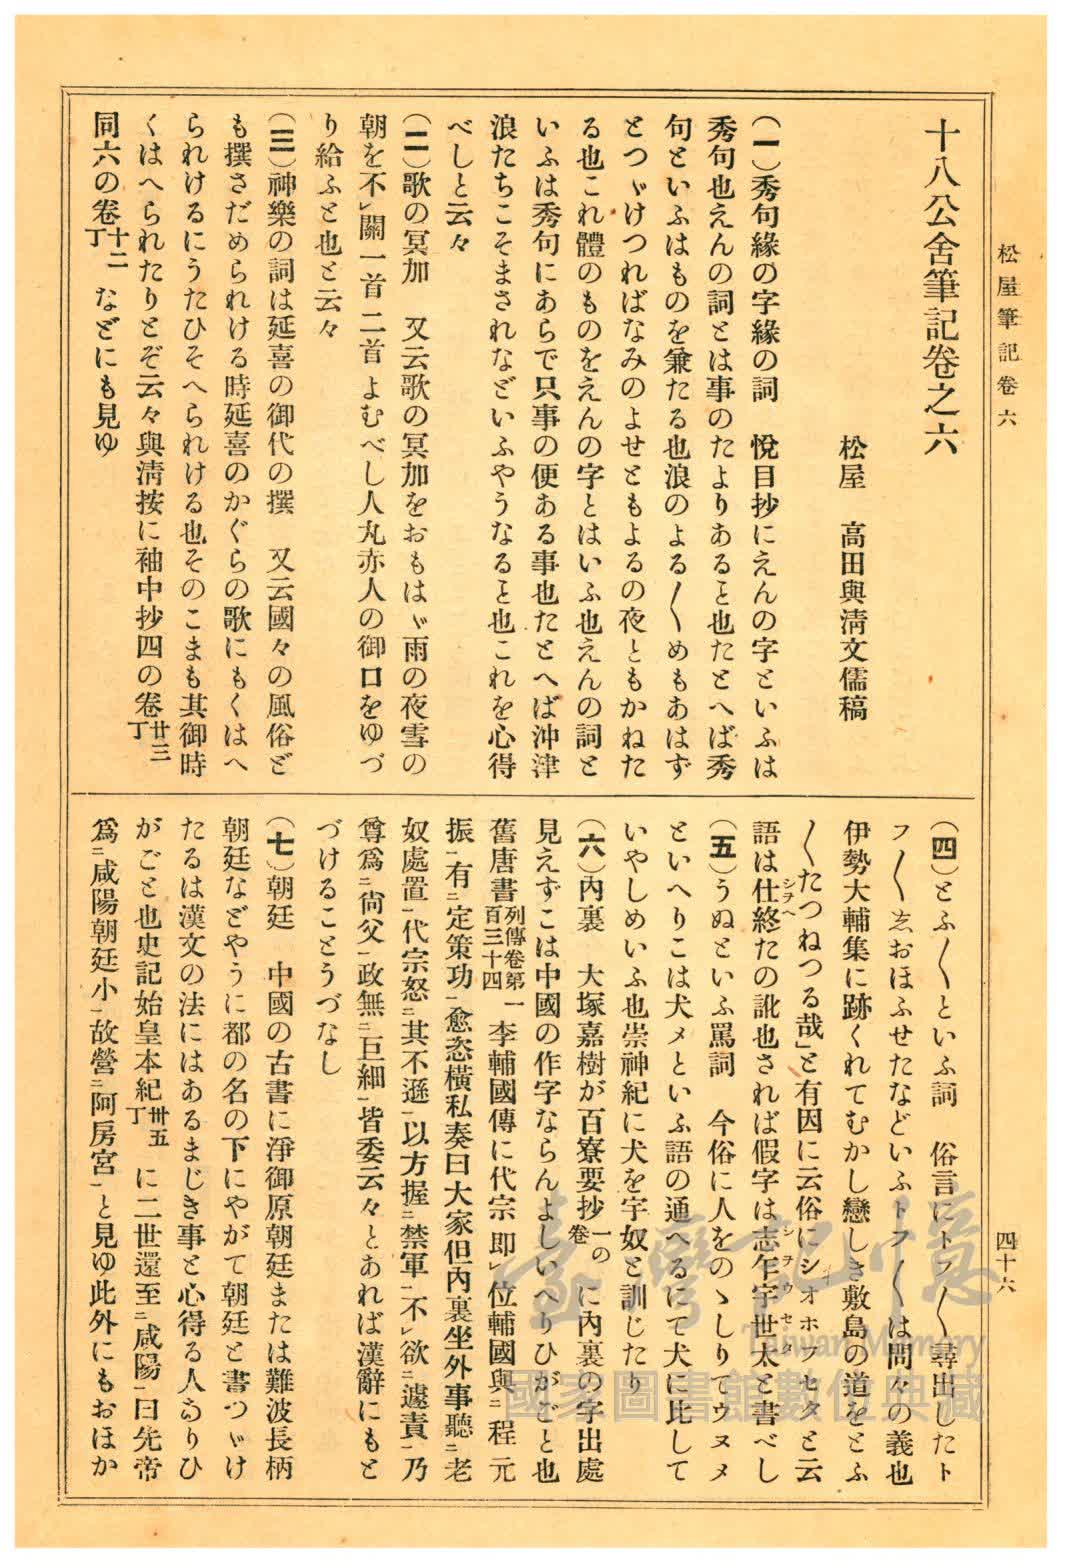 松屋筆記卷六
四十六
十八公舍筆記卷之六
松屋　高田與清文儒稿
(一)秀句緣の字緣の詞　悅目抄にえんの字といふは
秀句也えんの詞とは事のたよりあると也たとへば秀
句といふはものを兼たる也浪のよる〱めもあはず
とつゞけつればなみのよせともよるの夜ともかねた
る也これ體のものをえんの字とはいふ也えんの詞と
いふは秀句にあらで只事の便ある事也たとへば沖津
浪たちこそまされなどいふやうなると也これを心得
べしと云々
(二)歌の冥加　又云歌の冥加をおもはゞ雨の夜雪の
朝を不㆑關一首二首よむべし人丸赤人の御口をゆづ
り給ふと也と云々
(三)神樂の詞は延喜の御代の撰　又云國々の風俗ど
も撰さだめられける時延喜のかぐらの歌にもくはへ
られけるにうたひそへられける也そのこまも其御時
くはへられたりとぞ云々與淸按に袖中抄四の卷廿三丁
同六の卷十二丁などにも見ゆ
(四)とふ〱といふ詞　俗言にトフ〱尋出したト
フ〱ゑおほふせたなどいふトフ〱は問々の義也
伊勢大輔集に跡くれてむかし戀しき敷島の道をとふ
〱たつねつる哉」と有因に云俗にシオホフセタと云
語は仕終シヲヘたの訛也されば假字は志乍宇世太シヲウセタと書べし
(五)うぬといふ罵詞　今俗に人をのゝしりてウヌメ
といへりこは犬メといふ語の通へるにて犬に比して
いやしめいふ也崇神紀に犬を字奴と訓じたり
(六)內裏　大塚嘉樹が百寮要抄一の卷に內裏の字出處
見えずこは中國の作字ならんよしいへりひがごと也
舊唐書列傳卷第一百三十四李輔國傳に代宗卽㆑位輔國與㆓程元
振㆒有㆓定策功㆒愈恣橫私奏曰大家但內裏坐外事聽㆓老
奴處置㆒代宗怒㆓其不遜㆒以方握㆓禁軍㆒不㆑欲㆓遽責㆒乃
尊爲㆓尙父㆒政無㆓巨細㆒皆委云々とあれば漢辭にもと
づけることうづなし
(七)朝廷　中國の古書に淨御原朝廷または難波長柄
朝廷などやうに都の名の下にやがて朝廷と書つゞけ
たるは漢文の法にはあるまじき事と心得る人ありひ
がごと也史記始皇本紀卅五丁に二世還至㆓咸陽㆒曰先帝
爲㆓咸陽朝廷小㆒故營㆓阿房宮㆒と見ゆ此外にもおほか
臺灣記憶
Taiwan Memory
國家圖書館數位典藏